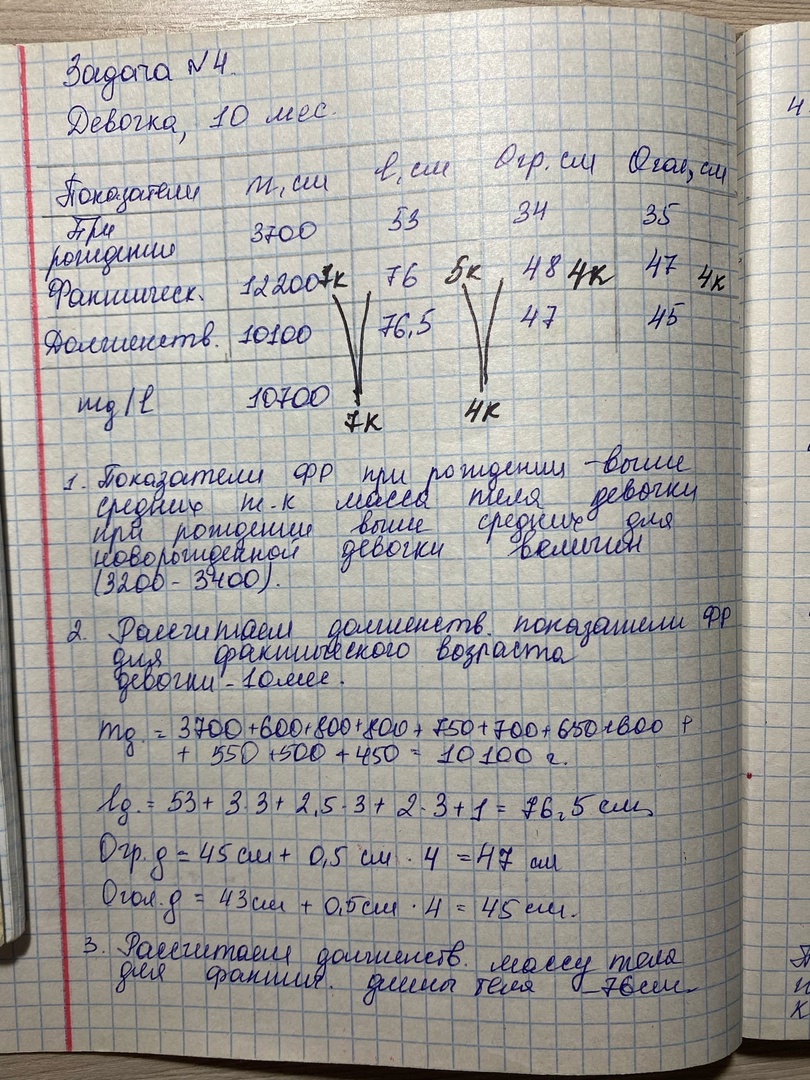 Задача №4.
Девочка, 10 мес.
Показатели m, см l, см Огр, см Огол, см
При рождении 3700 53 34 35
Фактическ. 12200 7к 76 5к 48 4к 47 4к
Долженств. 10100 76,5 47 45
mд/l 10700 7к 4к
1. Показатели ФР при рождении - выше
средних т-к масса тела девочки
при рождении выше средних для
новорожденной девочки величин
(3200 - 3400).
2. Рассчитаем долженств. показатели ФР
для фактического возраста
девочки - 10 мес.
mд. = 3700+600+800+800+750+700+650+600 +
+ 550 +500 +450 = 10100 г.
lд. = 53 + 3·3 + 2,5·3 + 2·3 + 1 = 76,5 см,
Огр.д = 45 см + 0,5 см · 4 = 47 см
Огол.д = 43 см + 0,5 см · 4 = 45 см.
3. Рассчитаем долженств. массу тела
для фактич. длины тела - 76 см.
4
к